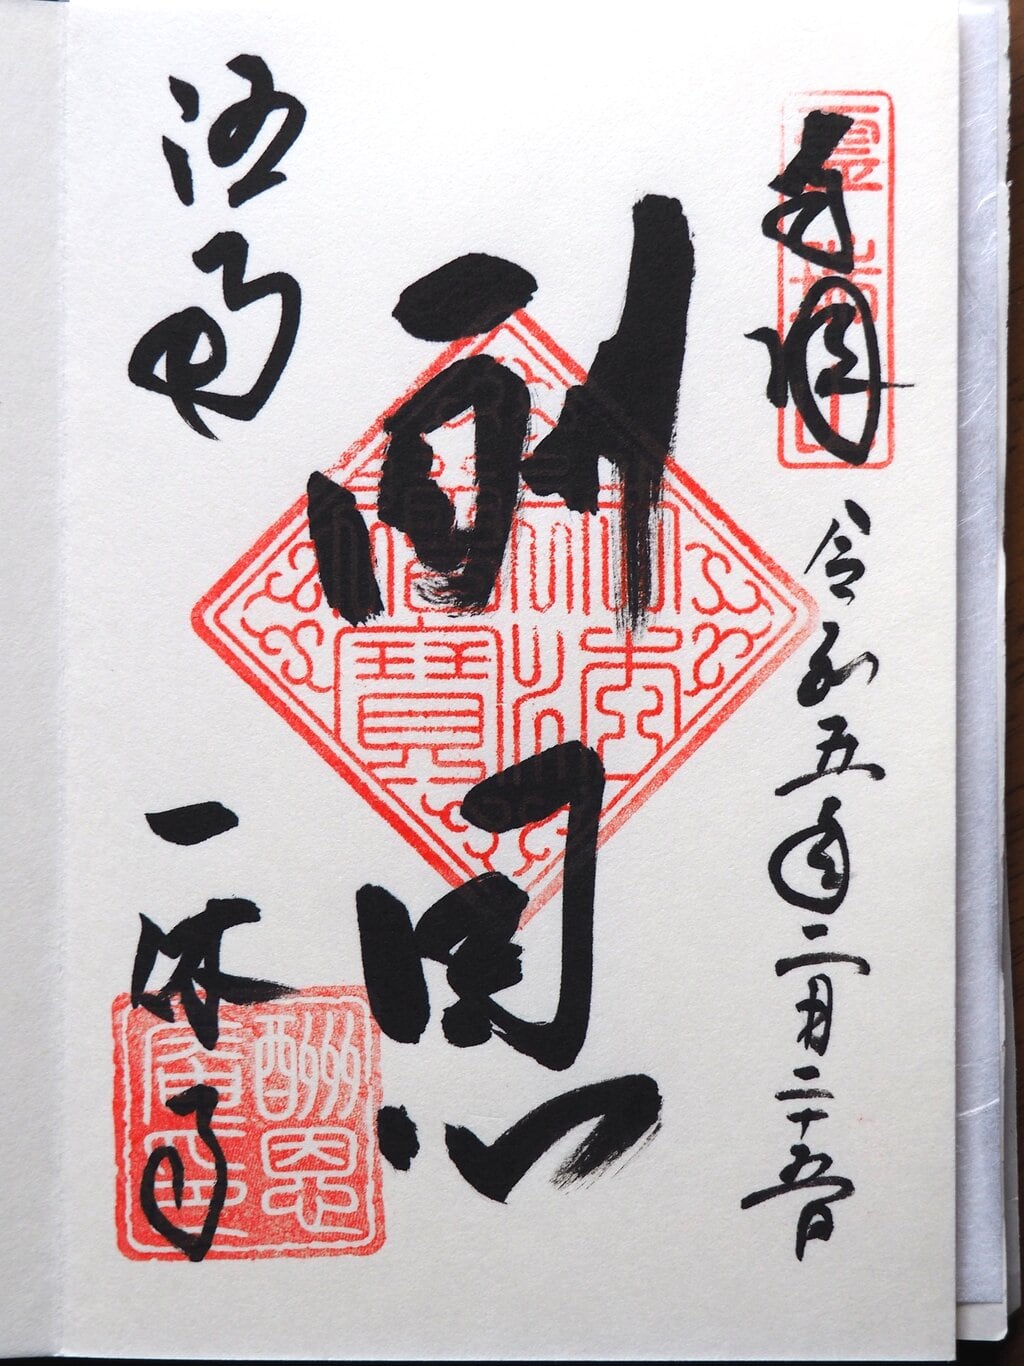 奉拝
令和五年二月二十五日
酬恩
佛法
僧寶
洛南
一休寺
酬恩
庵印